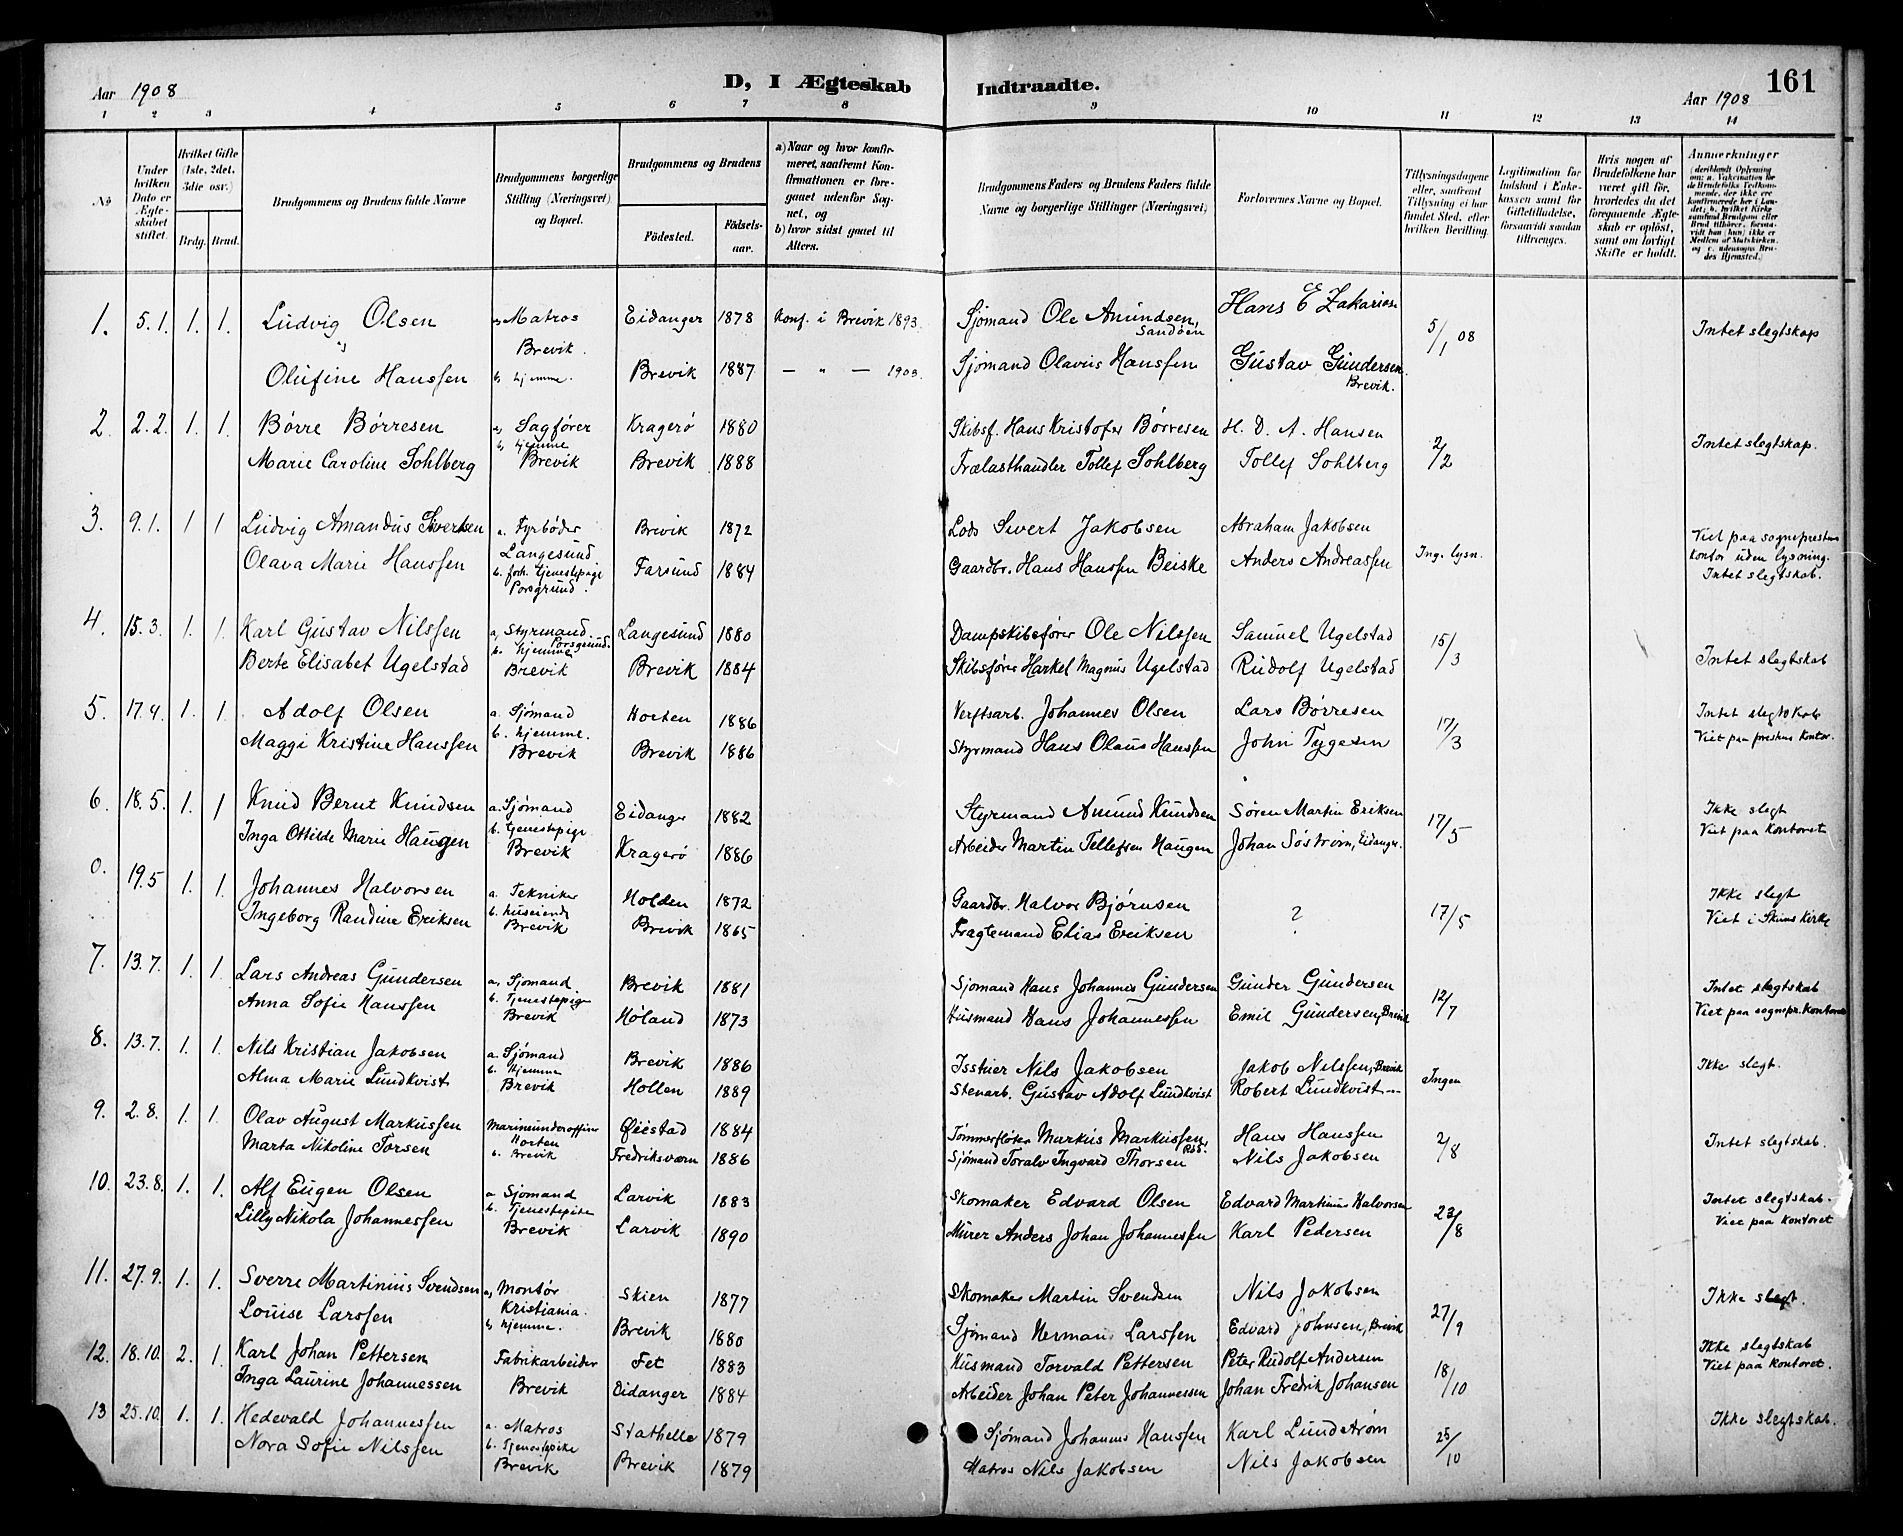 Aar 1908
D, I Ægteskab Indtraadte.
Aar 1908
161
1 2 3 4 5 6 7 8 9 10 11 12 13 14
No
Under hvilken Dato er Ægteskabet stiftet.
Hvilket Gifte (1ste, 2det, 3die osv.)
Brdg. Brud.
Brudgommens og Brudens fulde Navne
Brudgommens borgerlige Stilling (Næringsvei) og Bopæl.
Brudgommens og Brudens
Fødested.
Fødselsaar.
a) Naar og hvor konfirmeret, saafremt Konfirmationen er foregaaet udenfor Sognet, og
b) hvor sidst gaaet til Alters.
Brudgommens Faders og Brudens Faders fulde Navne og borgerlige Stillinger (Næringsvei)
Forlovernes Navne og Bopæl.
Tillysningsdagene eller, saafremt Tillysning ei har fundet Sted, efter hvilken Bevilling.
Legitimation for Indskud i Enkekassen samt for Giftetilladelse, forsaavidt saadan tiltrænges.
Hvis nogen af Brudefolkene har været gift før, hvorledes da det foregaaende Ægteskab er opløst, samt om lovligt Skifte er holdt.
Anmerkninger (deriblandt Oplysning om: a. Vakcination for de Brudefolks Vedkommende, der ikke ere konfirmerede her i Landet; b. hvilket Kirkesamfund Brudgom eller Brud tilhører, forsaavidt han (hun) ikke er Medlem af Statskirken, og c. udensogns Brudes Hjemsted.)
1. 5.1. 1. 1. Ludvig Olsen a) Matros Eidanger 1878 Konf. i Brevik 1893. Sjømand Ole Amundsen, Hans E Zakarias 5/1 08 Intet slegtskap
Brevik. Sandøen
Olufine Hanssen b, hjemme. Brevik 1887 — " — 1903. Sjømand Olavus Hanssen Gustav Gundersen
Brevik.
2. 2.2. 1. 1. Børre Børresen a, Sagfører Kragerø 1880 Skibsf. Hans Kristofer Børresen H. D. A. Hansen 2/2 Intet slegtskap.
b, hjemme
Marie Caroline Sohlberg Brevik Brevik 1888 Trælasthandler Tollef Sohlberg Tollef Sohlberg
3. 9.1. 1 1 Ludvig Amandus Sivertsen a. Fyrbøder Brevik 1872 Lods Sivert Jakobsen Abraham Jakobsen Ing. lysn. Viet paa sogneprestens
Langesund kontor uden lysning.
Olava Marie Hanssen b. forh. tjenestepige Farsund 1884 Gaardbr. Hans Hanssen Beiske Anders Andreassen Intet slegtskab.
Porsgrund.
4. 15.3. 1. 1. Karl Gustav Nilssen a, Styrmand. Langesund 1880 Dampskibsfører Ole Nilssen Samuel Ugelstad 15/3 Intet slegtskab
Porsgrund.
b. hjemme
Berte Elisabet Ugelstad Brevik Brevik 1884 Skibsfører Harkel Magnus Ugelstad Rudolf Ugelstad
5. 17.4. 1. 1. Adolf Olsen a. Sjømand Horten 1886 Verftsarb. Johannes Olsen Lars Børresen 17/3 Intet slegtskab
b. hjemme. Viet paa prestens kontor.
Maggi Kristine Hanssen Brevik Brevik 1886 Styrmand Hans Olaus Hanssen John Tygesen
6. 18.5. 1. 1 Knud Bernt Knudsen a. Sjømand Eidanger 1882 Styrmand Amund Knudsen Søren Martin Eriksen 17/5 Ikke slegt
b. tjenestepige Viet paa kontoret
Inga Ottilde Marie Haugen Brevik Kragerø 1886 Arbeider Martin Tellefsen Haugen Johan Søstrøm, Eidanger.
0. 19.5 1. 1. Johannes Halvorsen a. Tekniker Holden 1872 Gaardbr. Halvor Bjørnsen ? 17/5 Ikke slegt
b. huseiende Viet i Skiens Kirke
Ingeborg Randine Eriksen Brevik Brevik 1865 Fragtemand Elias Eriksen
7. 13.7. 1. 1. Lars Andreas Gundersen a, Sjømand. Brevik 1881 Sjømand Hans Johannes Gundersen Gunder Gundersen 12/7 Intet slegtskab
b. Tjenestepige Viet paa sognepr. kontoret
Anna Sofie Hanssen Brevik Høland 1873 Husmand Hans Johannessen Emil Gundersen, Brevik
8. 13.7. 1. 1. Nils Kristian Jakobsen a. Sjømand Brevik 1886 Isstuer Nils Jakobsen Jakob Nilssen, Brevik Ingen Ikke slegt.
b. hjemme
Alma Marie Lundkvist Brevik Hollen 1889 Stenarb. Gustav Adolf Lundkvist Robert Lundkvist —
9. 2.8. 1. 1. Olav August Markussen Marineunderofficer Øiestad 1884 Tømmerfløter Markus Markussen, Hans Hanssen 2/8 Intet slegtskab.
Horten
Marta Nikoline Torsen b. Brevik Fredriksværn 1886 Sjømand Toralv Ingvard Thorsen Nils Jakobsen
10. 23.8. 1. 1. Alf Eugen Olsen a Sjømand Larvik 1883 Skomaker Edvard Olsen Edvard Martinius Halvorsen 23/8 Intet slegtskab.
b. Tjenestepike Viet paa kontoret
Lilly Nikola Johannessen Brevik Larvik 1890 Murer Anders Johan Johannessen Karl Pedersen
11. 27.9. 1. 1. Sverre Martinius Svendsen a, Montør Skien 1877 Skomaker Martin Svendsen Nils Jakobsen 27/9 Ikke slegt.
Kristiania.
Louise Larssen b, hjemme. Brevik 1880 Sjømand Herman Larssen Edvard Johnsen, Brevik
12. 18.10. 2. 1. Karl Johan Pettersen Fabrikarbeider Fet 1883 Husmand Torvald Pettersen Peter Rudolf Andersen 18/10 Ikke slegtskab
Viet paa kontoret.
Inga Laurine Johannessen Brevik Eidanger 1884 Arbeider Johan Peter Johannessen Johan Fredrik Johansen
13 25.10. 1. 1. Hedevald Johannessen a. Matros Stathelle 1879 Sjømand Johannes Hanssen Karl Lundstrøm 25/10 Ikke slegtskab.
b. Tjenestepike
Nora Sofie Nilssen Brevik Brevik 1879 Matros Nils Jakobsen Nils Jakobsen